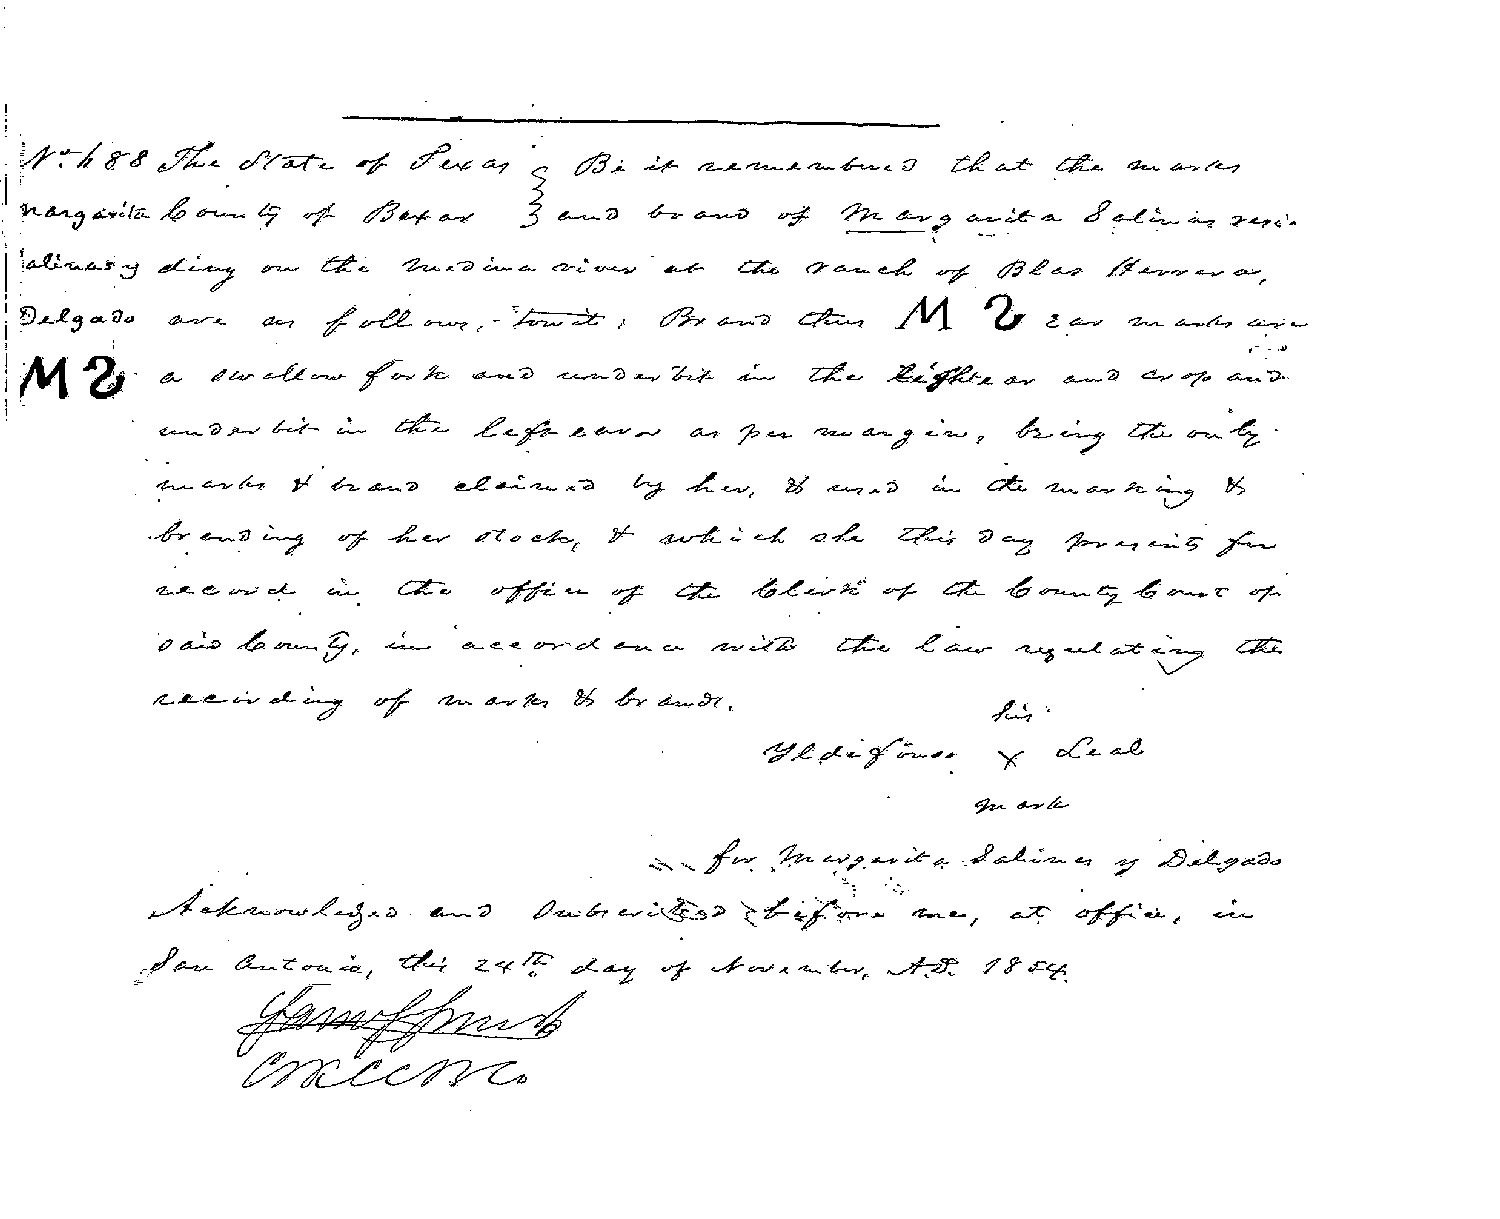 No. 488 The State of Texas } Be it remembered that the marks
Margarita County of Bexar } and brand of Margarita Salinas resi-
Salinas y ding on the Medina river at the ranch of Blas Herrera,
Delgado are as follows, - towit; Brand thus M S ear marks are
M S a swallow fork and underbit in the right ear and crop and
underbit in the left ear as per margin, being the only
marks & brand claimed by her, & used in the marking &
branding of her stock, & which she this day presents for
record in the office of the Clerk of the County Court of
said County, in accordance with the law regulating the
recording of marks & brands.
his
Yldifonso x Leal
mark
for Margarita Salinas y Delgado
Acknowledged and Subscribed before me, at office, in
San Antonio, this 24th day of November, A.D. 1854.